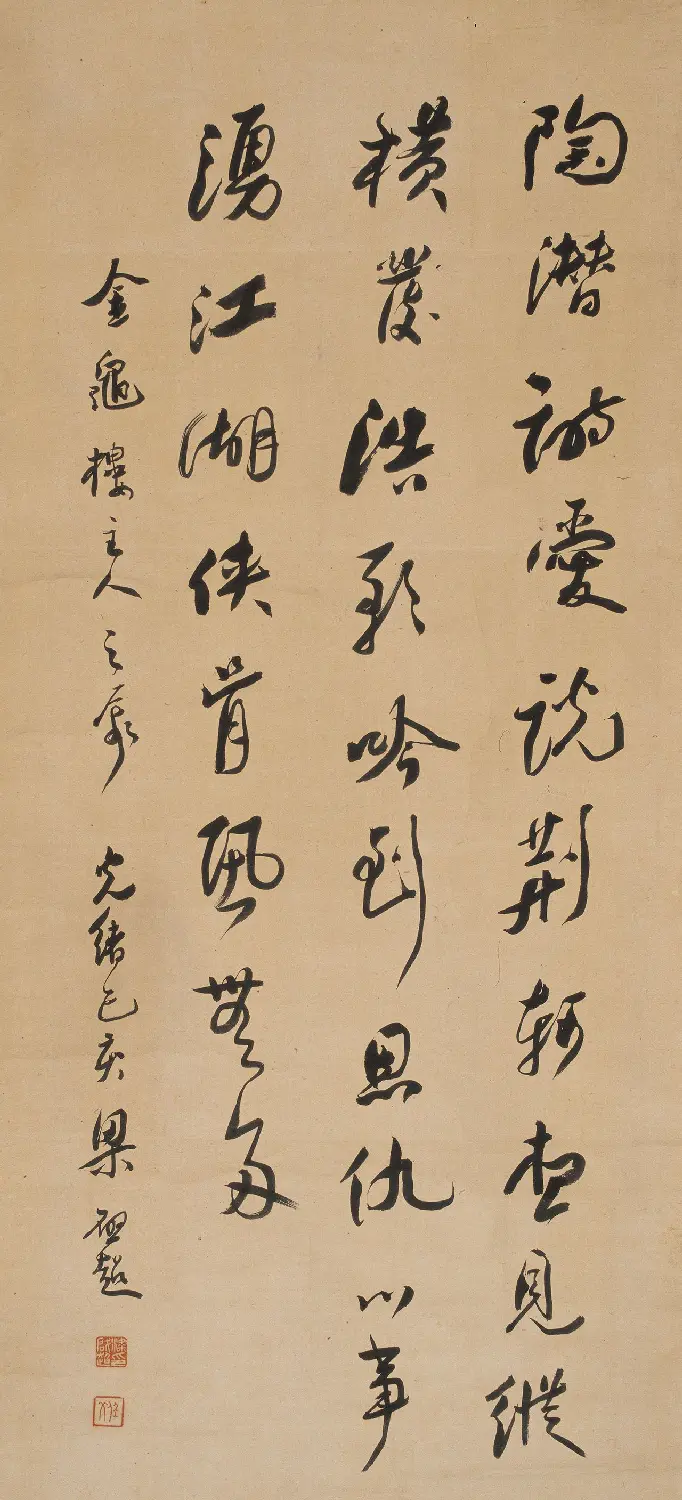 陶潛詩愛說荊軻想見縱
橫發浩歌吟到恩仇心事
湧江湖俠骨恐無多
金龜樓主人之屬 光緒己亥 梁啟超